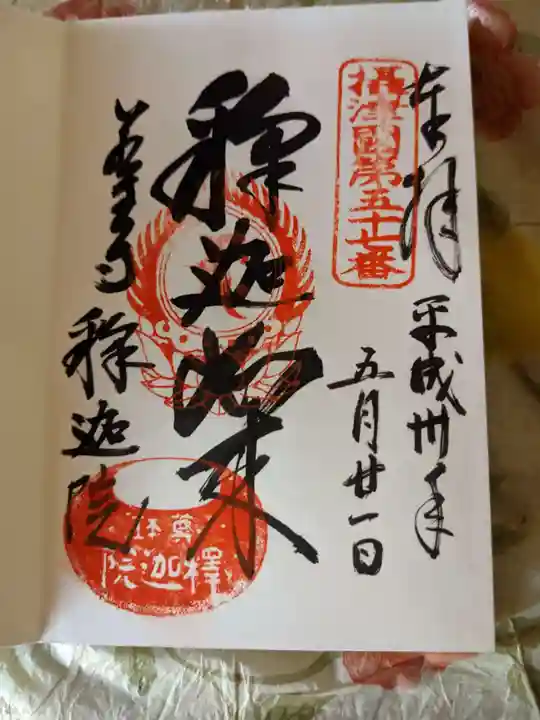 奉拝
平成卅年
五月廿一日
摂津國第五十七番
釋迦如来
釋迦院
尊鉢
釋迦院